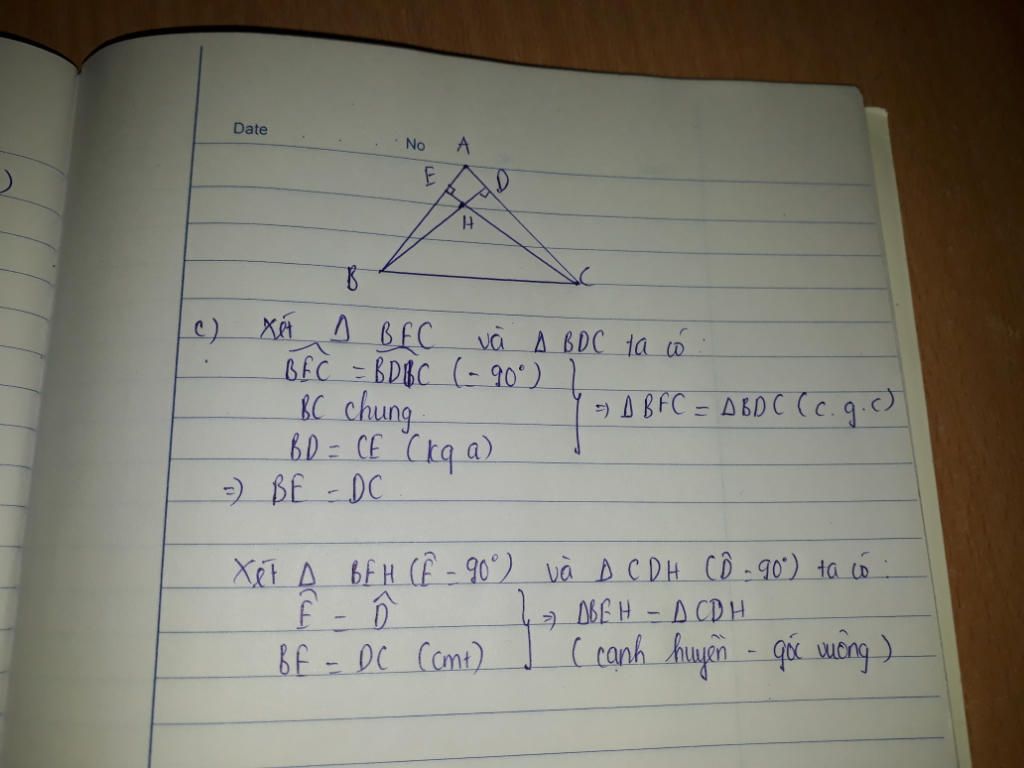 Date No
A
E D
H
B C
c) Xét Δ BEC và Δ BDC ta có:
BEC = BDC (= 90°)
BC chung
BD = CE (kq a)
⇒ ΔBEC = ΔBDC (c.g.c)
⇒ BE = DC
Xét Δ BEH (Ê = 90°) và Δ CDH (D̂ = 90°) ta có:
Ê = D̂
BE = DC (cmt)
⇒ ΔBEH = ΔCDH
(cạnh huyền - góc vuông)